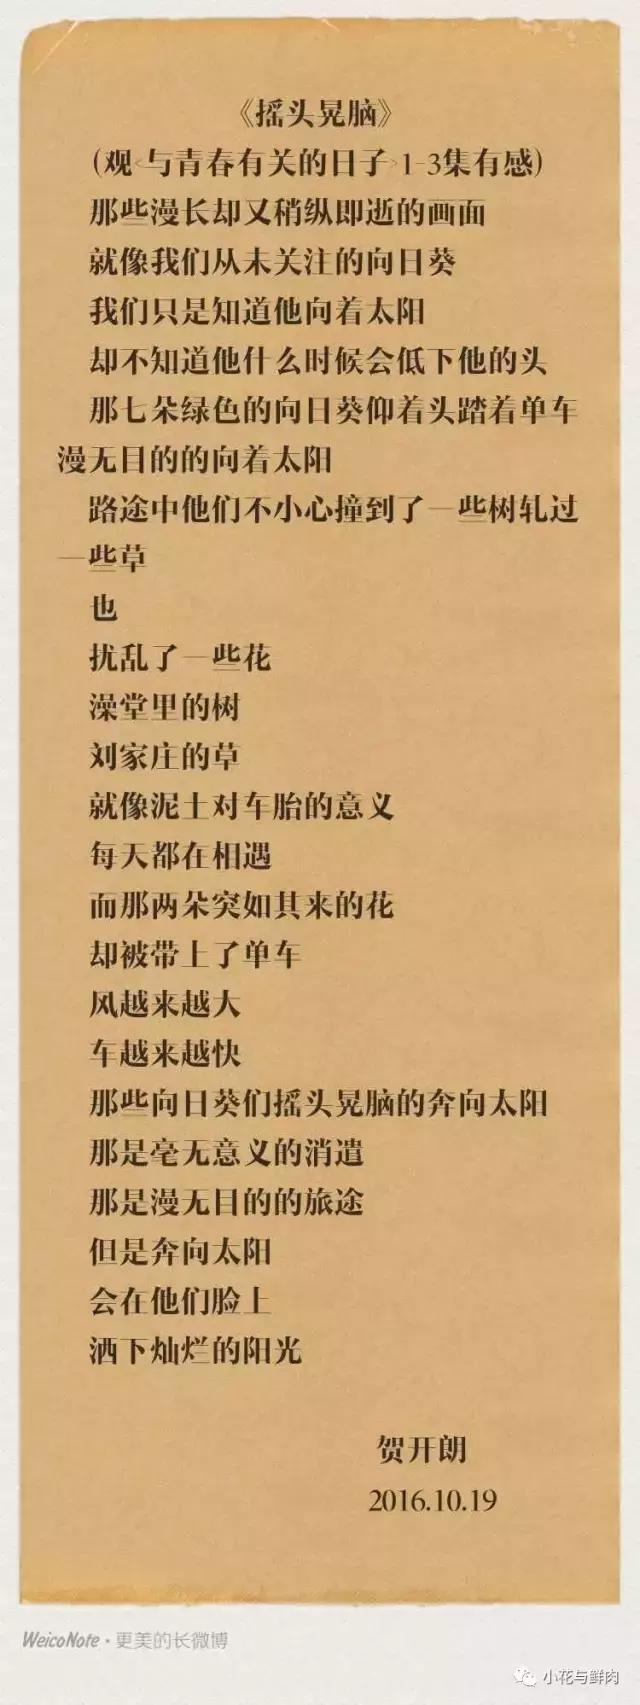 《摇头晃脑》
(观<与青春有关的日子>1-3集有感)
那些漫长却又稍纵即逝的画面
就像我们从未关注的向日葵
我们只是知道他向着太阳
却不知道他什么时候会低下他的头
那七朵绿色的向日葵仰着头踏着单车
漫无目的的向着太阳
路途中他们不小心撞到了一些树轧过
一些草
也
扰乱了一些花
澡堂里的树
刘家庄的草
就像泥土对车胎的意义
每天都在相遇
而那两朵突如其来的花
却被带上了单车
风越来越大
车越来越快
那些向日葵们摇头晃脑的奔向太阳
那是毫无意义的消遣
那是漫无目的的旅途
但是奔向太阳
会在他们脸上
洒下灿烂的阳光
贺开朗
2016.10.19
WeicoNote·更美的长微博
小花与鲜肉